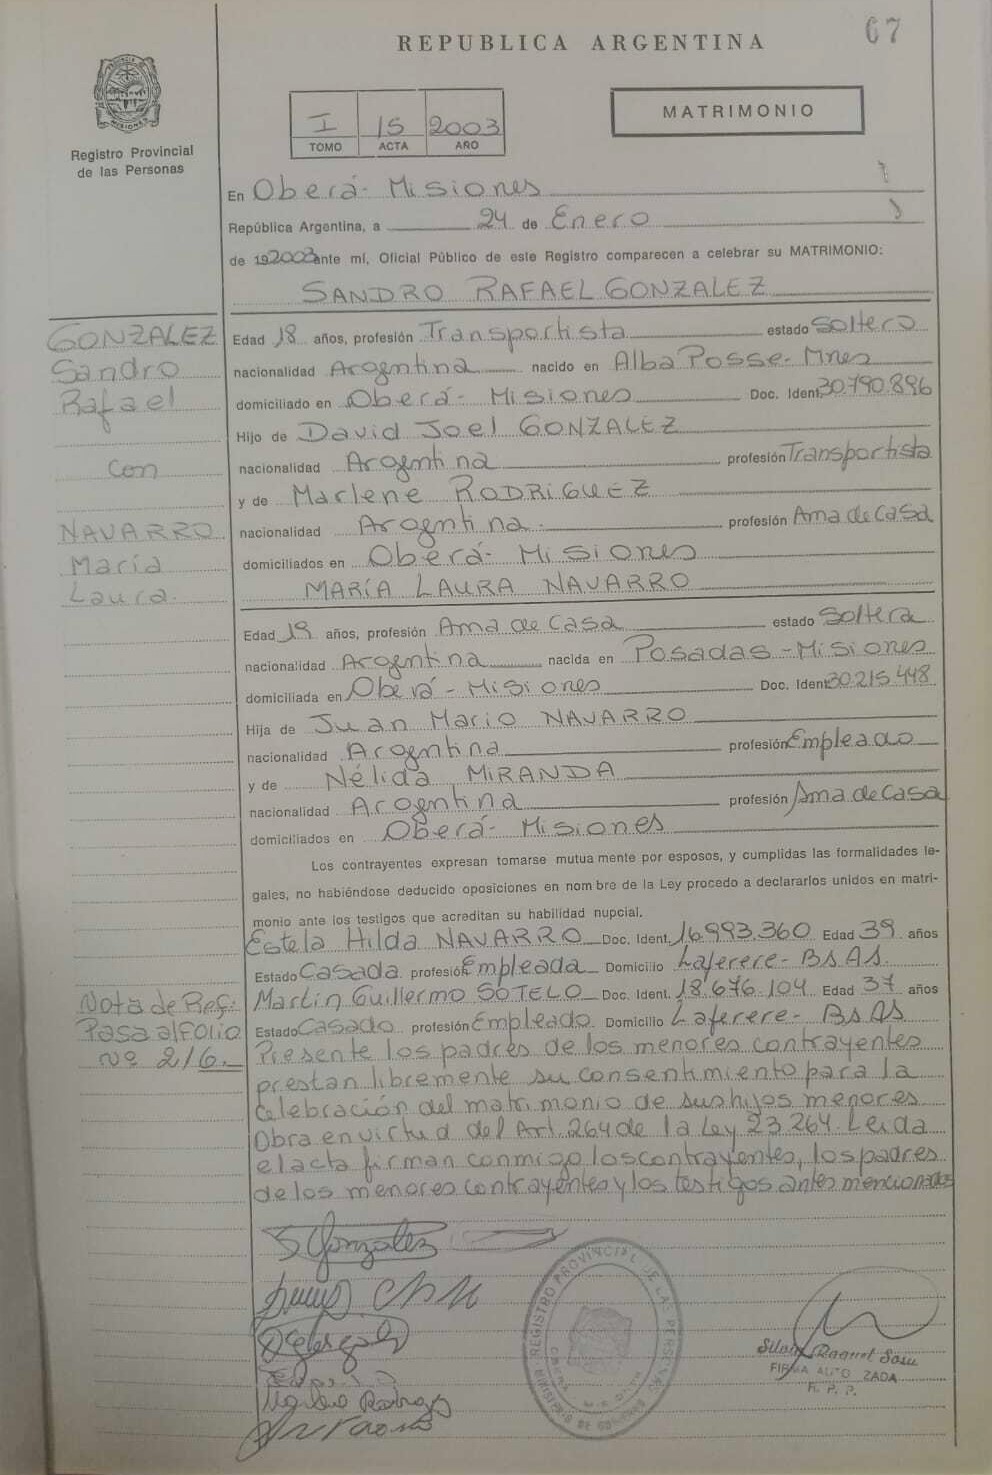 67
REPUBLICA ARGENTINA
PROVINCIA DE MISIONES
Registro Provincial
de las Personas
I 15 2003
TOMO ACTA AÑO
MATRIMONIO
En Oberá - Misiones
República Argentina, a 24 de Enero
de 192003 ante mí, Oficial Público de este Registro comparecen a celebrar su MATRIMONIO:
SANDRO RAFAEL GONZALEZ
GONZALEZ
Sandro
Rafael
con
NAVARRO
María
Laura.
Edad 18 años, profesión Transportista estado Soltero
nacionalidad Argentina nacido en Alba Posse - Mnes
domiciliado en Oberá - Misiones Doc. Ident. 30.790.896
Hijo de David Joel GONZALEZ
nacionalidad Argentina profesión Transportista
y de Marlene RODRIGUEZ
nacionalidad Argentina profesión Ama de Casa
domiciliados en Oberá - Misiones
MARÍA LAURA NAVARRO
Edad 19 años, profesión Ama de Casa estado Soltera
nacionalidad Argentina nacida en Posadas - Misiones
domiciliada en Oberá - Misiones Doc. Ident. 30.215.448
Hija de Juan Mario NAVARRO
nacionalidad Argentina profesión Empleado
y de Nélida MIRANDA
nacionalidad Argentina profesión Ama de Casa
domiciliados en Oberá - Misiones
Los contrayentes expresan tomarse mutua mente por esposos, y cumplidas las formalidades le-
gales, no habiéndose deducido oposiciones en nom bre de la Ley procedo a declararlos unidos en matri-
monio ante los testigos que acreditan su habilidad nupcial.
Estela Hilda NAVARRO Doc. Ident. 16.993.360 Edad 39 años
Estado Casada profesión Empleada Domicilio Laferere - Bs As.
Martín Guillermo SOTELO Doc. Ident. 18.676.104 Edad 37 años
Estado Casado profesión Empleado Domicilio Laferere - Bs As
Nota de Ref:
Pasa al FOLIO
nº 216.-
Presente los padres de los menores contrayentes
prestan libremente su consentimiento para la
Celebración del matrimonio de sus hijos menores
Obra en virtud del Art. 264 de la Ley 23.264. Leida
el acta firman conmigo los contrayentes, los padres
de los menores contrayentes y los testigos antes mencionados
S Gonzalez
REGISTRO PROVINCIAL DE LAS PERSONAS
Raquel Sosa
FIRMA AUTORIZADA
R. P. P.